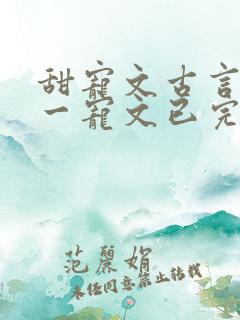 甜寵文古言
一寵文已完
范麗娟
未经同意禁止转载